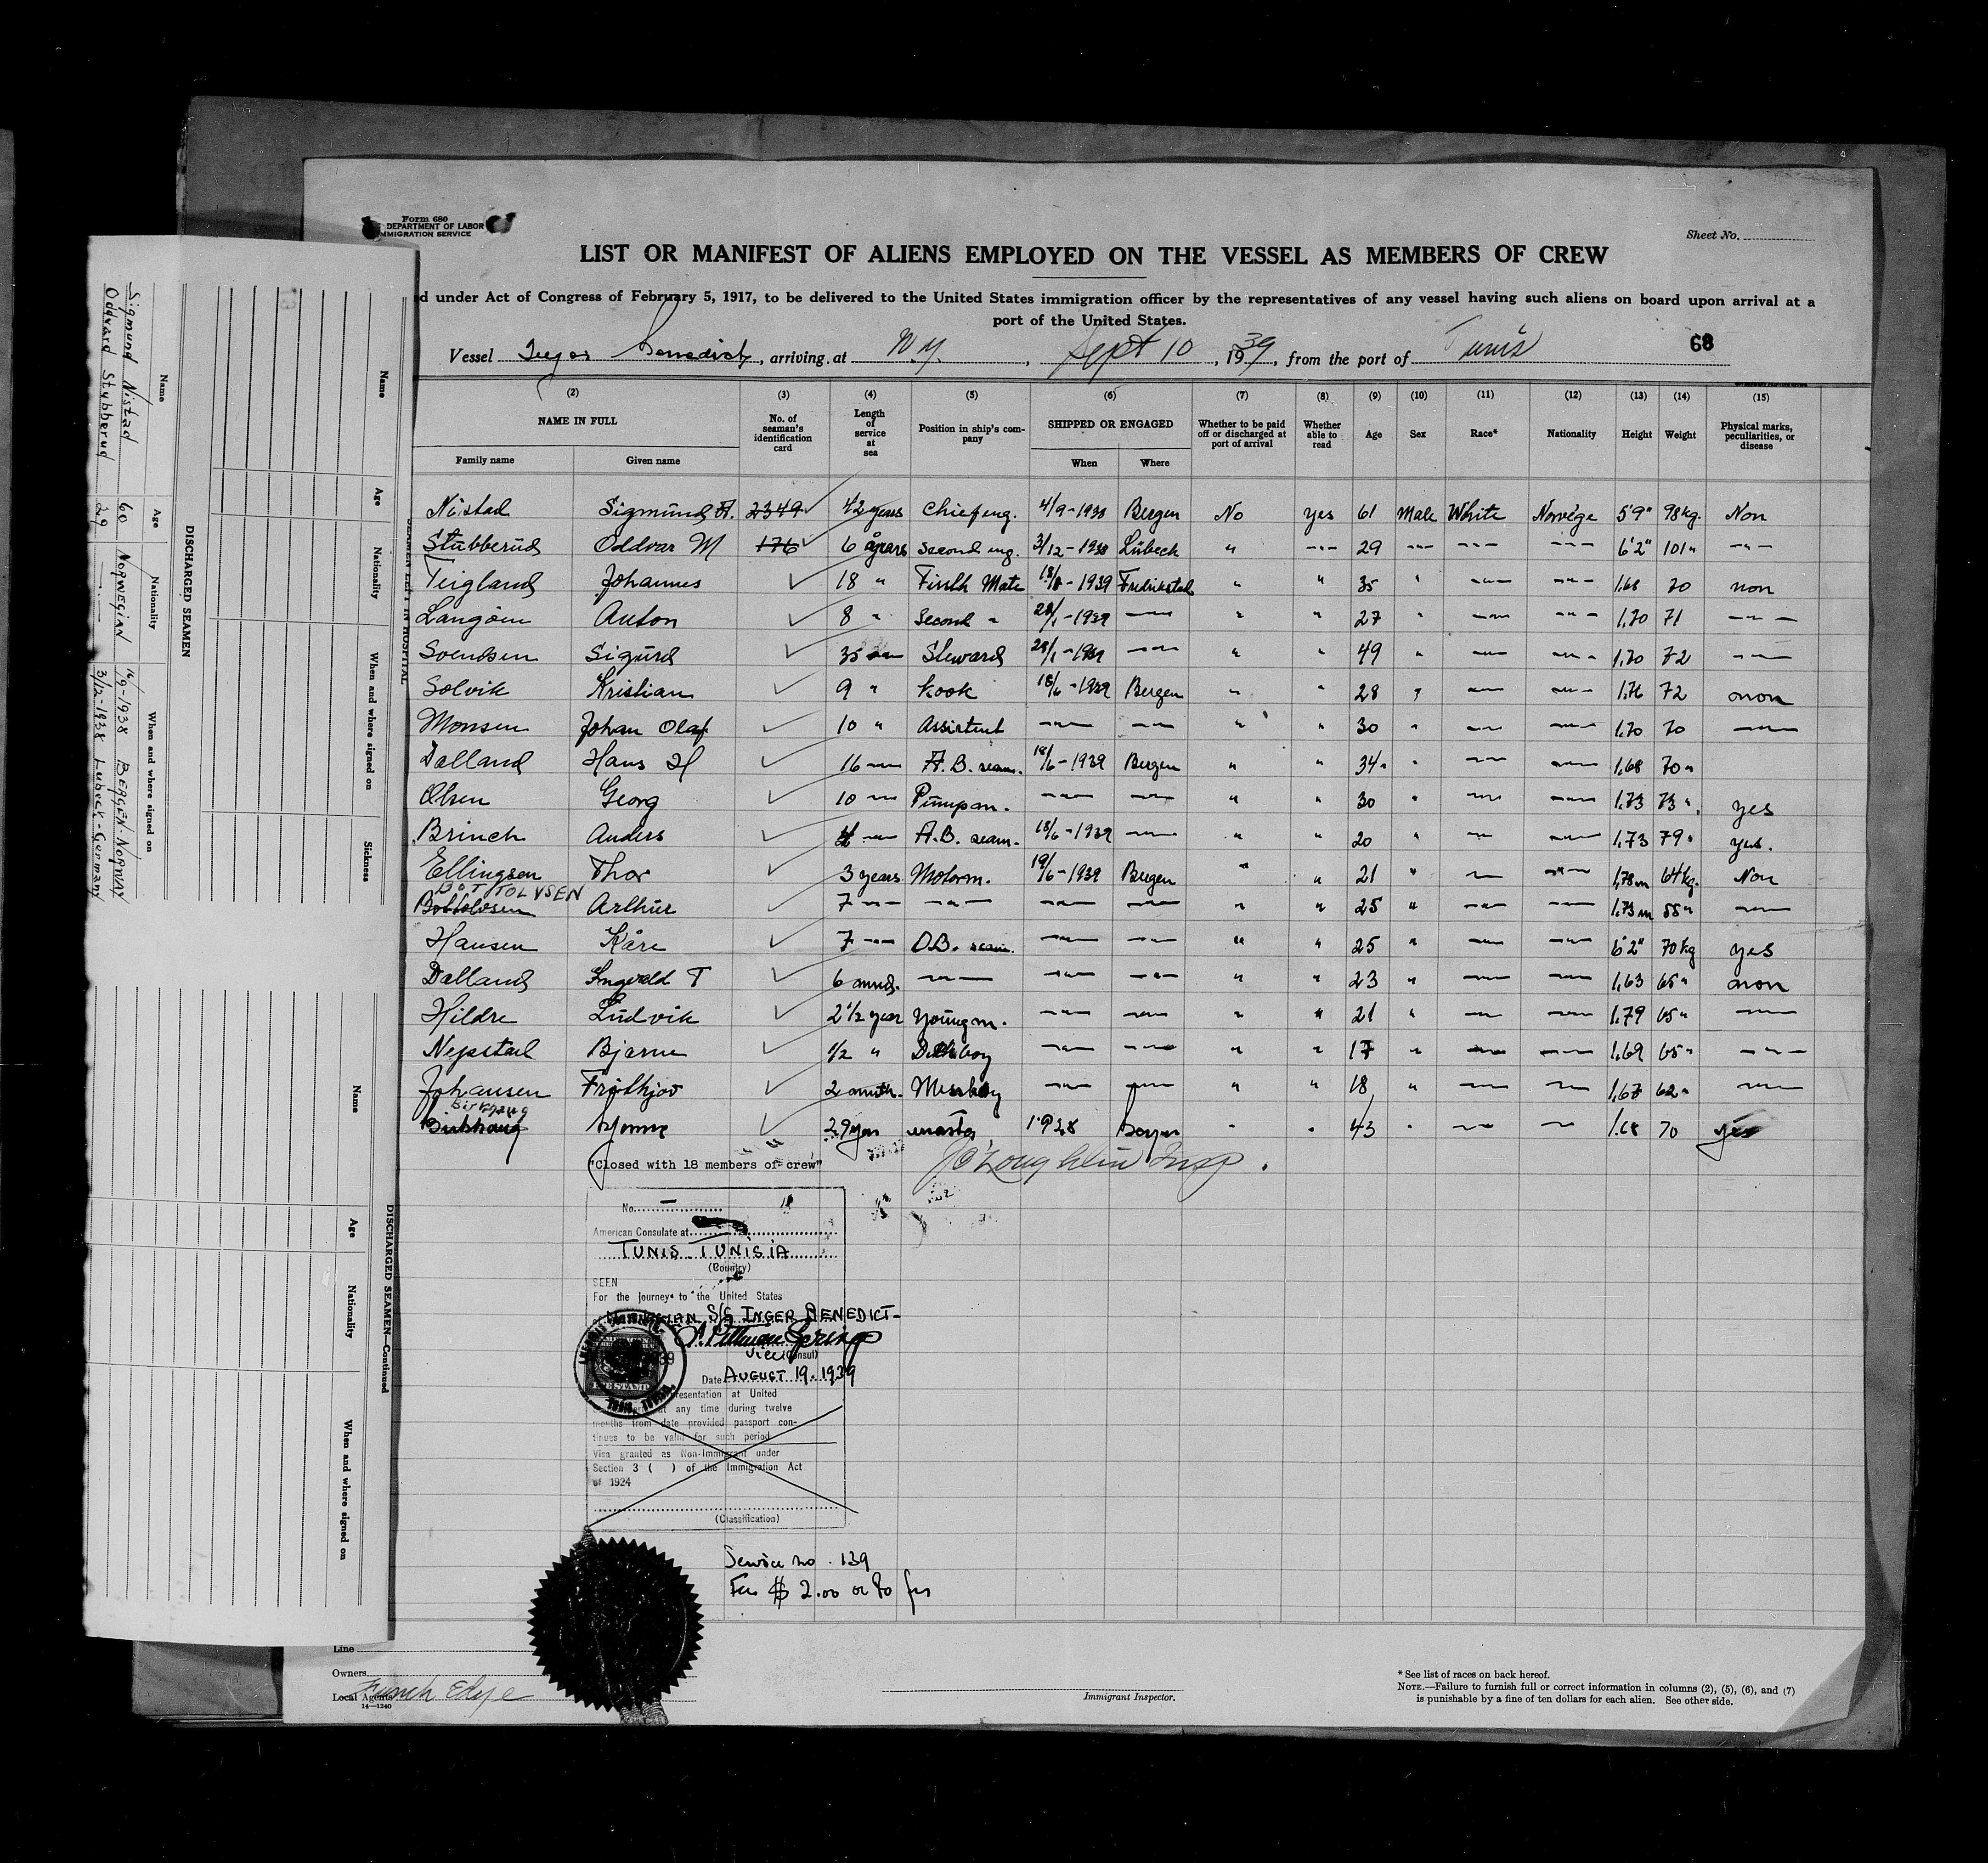 Form 680
DEPARTMENT OF LABOR
IMMIGRATION SERVICE
Sheet No.
LIST OR MANIFEST OF ALIENS EMPLOYED ON THE VESSEL AS MEMBERS OF CREW
d under Act of Congress of February 5, 1917, to be delivered to the United States immigration officer by the representatives of any vessel having such aliens on board upon arrival at a
port of the United States.
Vessel Inger Benedict, arriving at N.Y., Sept 10, 1939, from the port of Tunis 68
(2) (3) (4) (5) (6) (7) (8) (9) (10) (11) (12) (13) (14) (15)
NAME IN FULL No. of seaman's identification card Length of service at sea Position in ship's company SHIPPED OR ENGAGED Whether to be paid off or discharged at port of arrival Whether able to read Age Sex Race* Nationality Height Weight Physical marks, peculiarities, or disease
Family name Given name When Where
Nistad Sigmund A. 2349 42 years Chief eng. 4/9-1938 Bergen No yes 61 Male White Norvége 5'9" 98 kg. Non
Stubberud Oddvar M 176 6 years Second eng. 3/12-1938 Lübeck " --- 29 --- --- --- 6'2" 101 " ---
Teigland Johannes 18 " Mate 18/8-1939 Fredrikstad " " 35 " --- --- 1,68 70 non
Anton 8 " Second " 28/1-1939 --- " " 27 " --- --- 1,70 71 ---
Svendsen Sigurd 35 --- Steward 28/1-1939 --- " " 49 " --- --- 1,70 72 ---
Solvik Kristian 9 " Kook 18/6-1939 Bergen " " 28 " --- --- 1,76 72 non
Monsen Johan Olaf 10 " Assistent --- --- " " 30 " --- --- 1,70 70 ---
Dalland Hans H 16 --- A.B. seam. 18/6-1939 Bergen " " 34 " --- --- 1,68 70 "
Olsen Georg 10 --- Pumpan. --- --- " " 30 " --- --- 1,73 73 " yes
Brinch Anders --- A.B. seam. 18/6-1939 --- " " 20 " --- --- 1,73 79 " yes.
Ellingsen Thor 3 years Motorm. 19/6-1939 Bergen " " 21 " --- --- 1,78 m 64 kg. Non
BOTTOLVSEN
Bottolvsen Arthur 7 --- --- --- --- " " 25 " --- --- 1.73 m 58 " ---
Hansen Kåre 7 --- O.B. seam. --- --- " " 25 " --- --- 6'2" 70 kg yes
Dalland Ingvald T 6 --- --- --- " " 23 " --- --- 1,63 65 " non
Hildre Ludvik 2 1/2 year Youngm. --- --- " " 21 " --- --- 1,79 65 " ---
Nepstad Bjarne 1/2 " Deckboy --- --- " " 17 " --- --- 1,69 65 " ---
Johansen Fridtjov 2 Messboy --- --- " " 18 " --- --- 1,67 62 " ---
Birkhaug
Birkhaug 29 year master 1928 Bergen " " 43 " --- --- 1.68 70 yes
"Closed with 18 members of crew" J O'Loughlin Insp.
No.
American Consulate at
TUNIS, TUNISIA
(Country)
SEEN
For the journey to the United States
S/S INGER BENEDICT
Vice (Consul)
Date AUGUST 19, 1939
presentation at United
at any time during twelve
months from date provided passport con-
tinues to be valid for such period
Visa granted as Non-Immigrant under
Section 3 ( ) of the Immigration Act
of 1924
(Classification)
Service no. 139
Fee $ 2.00 or 80 frs
Line
Owners
Local Agents Funch Edye
14—1240
Immigrant Inspector.
* See list of races on back hereof.
NOTE.—Failure to furnish full or correct information in columns (2), (5), (6), and (7)
is punishable by a fine of ten dollars for each alien. See other side.
SEAMEN LEFT IN HOSPITAL
Name Age Nationality When and where signed on Sickness
DISCHARGED SEAMEN
Name Age Nationality When and where signed on
Sigmund Nistad 60 Norwegian 16/9-1938 BERGEN-NORWAY
Oddvard Stubberud 29 —.— 3/12-1938 Lubeck-Germany
DISCHARGED SEAMEN—Continued
Name Age Nationality When and where signed on